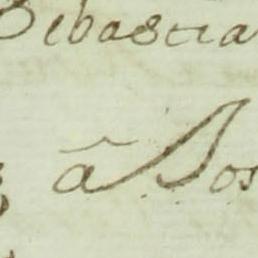 Sebastia
â Jos